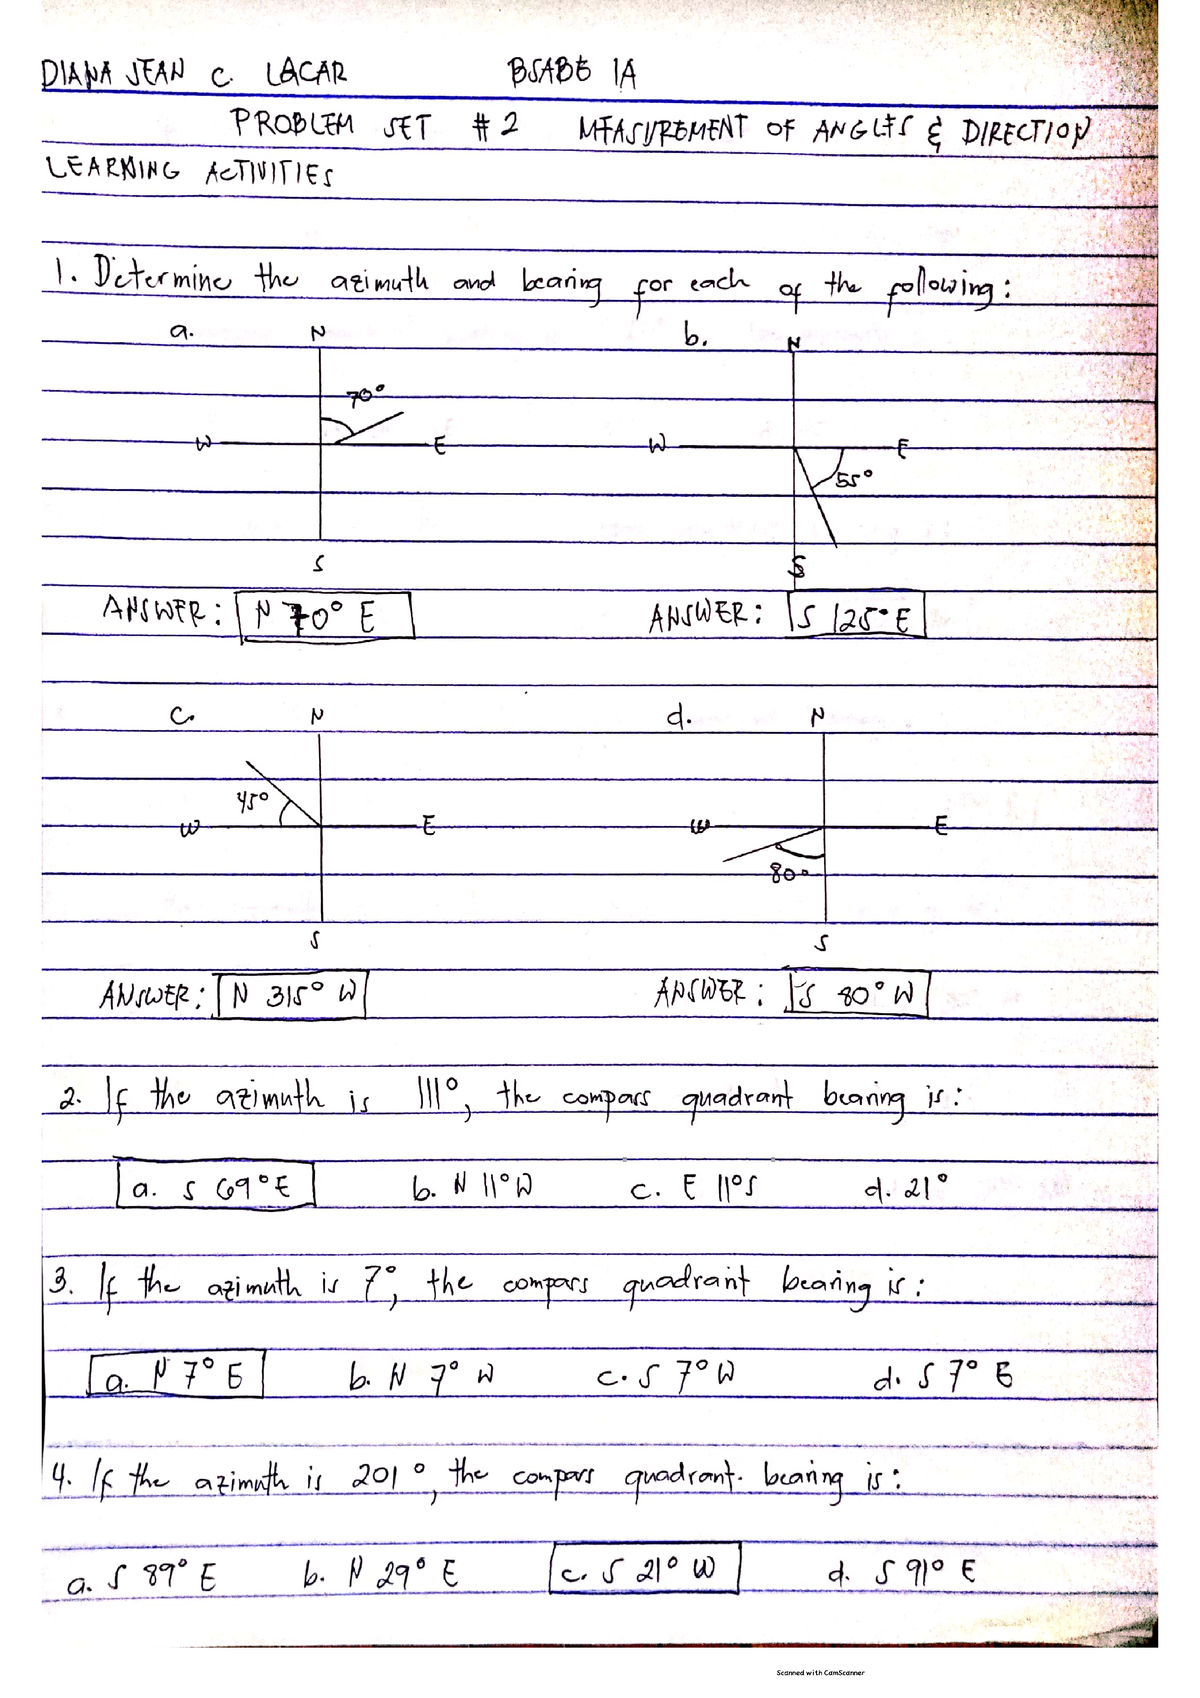 DIANA JEAN C. LACAR BSABE 1A
PROBLEM SET #2 MEASUREMENT OF ANGLES & DIRECTION
LEARNING ACTIVITIES
1. Determine the azimuth and bearing for each of the following:
a. N b. N
70°
W E W E
55°
S S
ANSWER: N 70° E ANSWER: S 125° E
c. N d. N
45°
W E W E
80°
S S
ANSWER: N 315° W ANSWER: S 80° W
2. If the azimuth is 111°, the compass quadrant bearing is:
a. S 69° E b. N 11° W c. E 11° S d. 21°
3. If the azimuth is 7°, the compass quadrant bearing is:
a. N 7° E b. N 7° W c. S 7° W d. S 7° E
4. If the azimuth is 201°, the compass quadrant. bearing is:
a. S 89° E b. N 29° E c. S 21° W d. S 91° E
Scanned with CamScanner